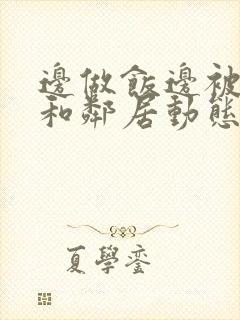 邊做飯邊被
和鄰居動態
夏學銮